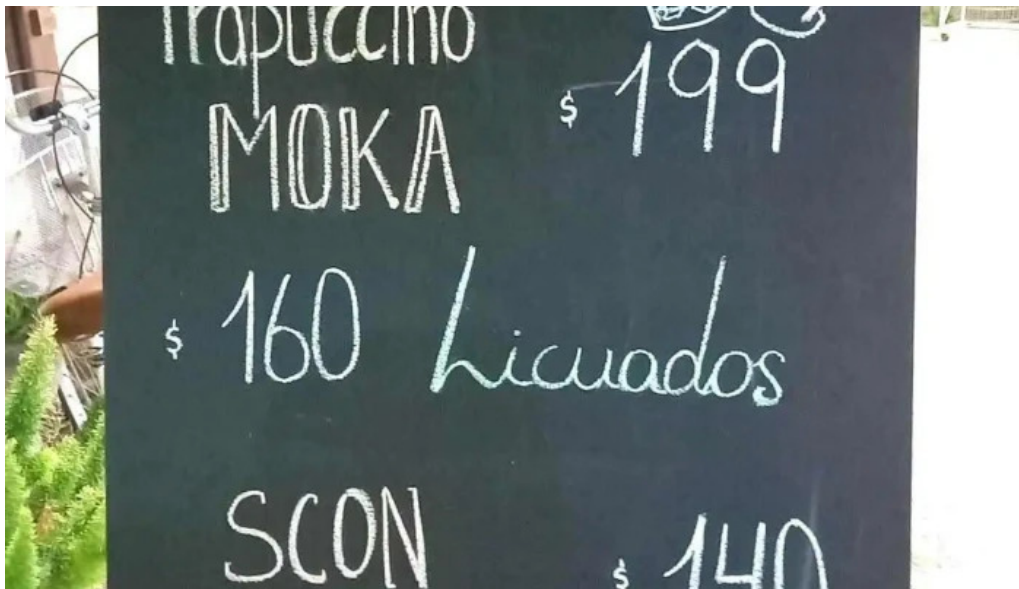 frapuccino
MOKA $ 199
$ 160 Licuados
SCON $ 140